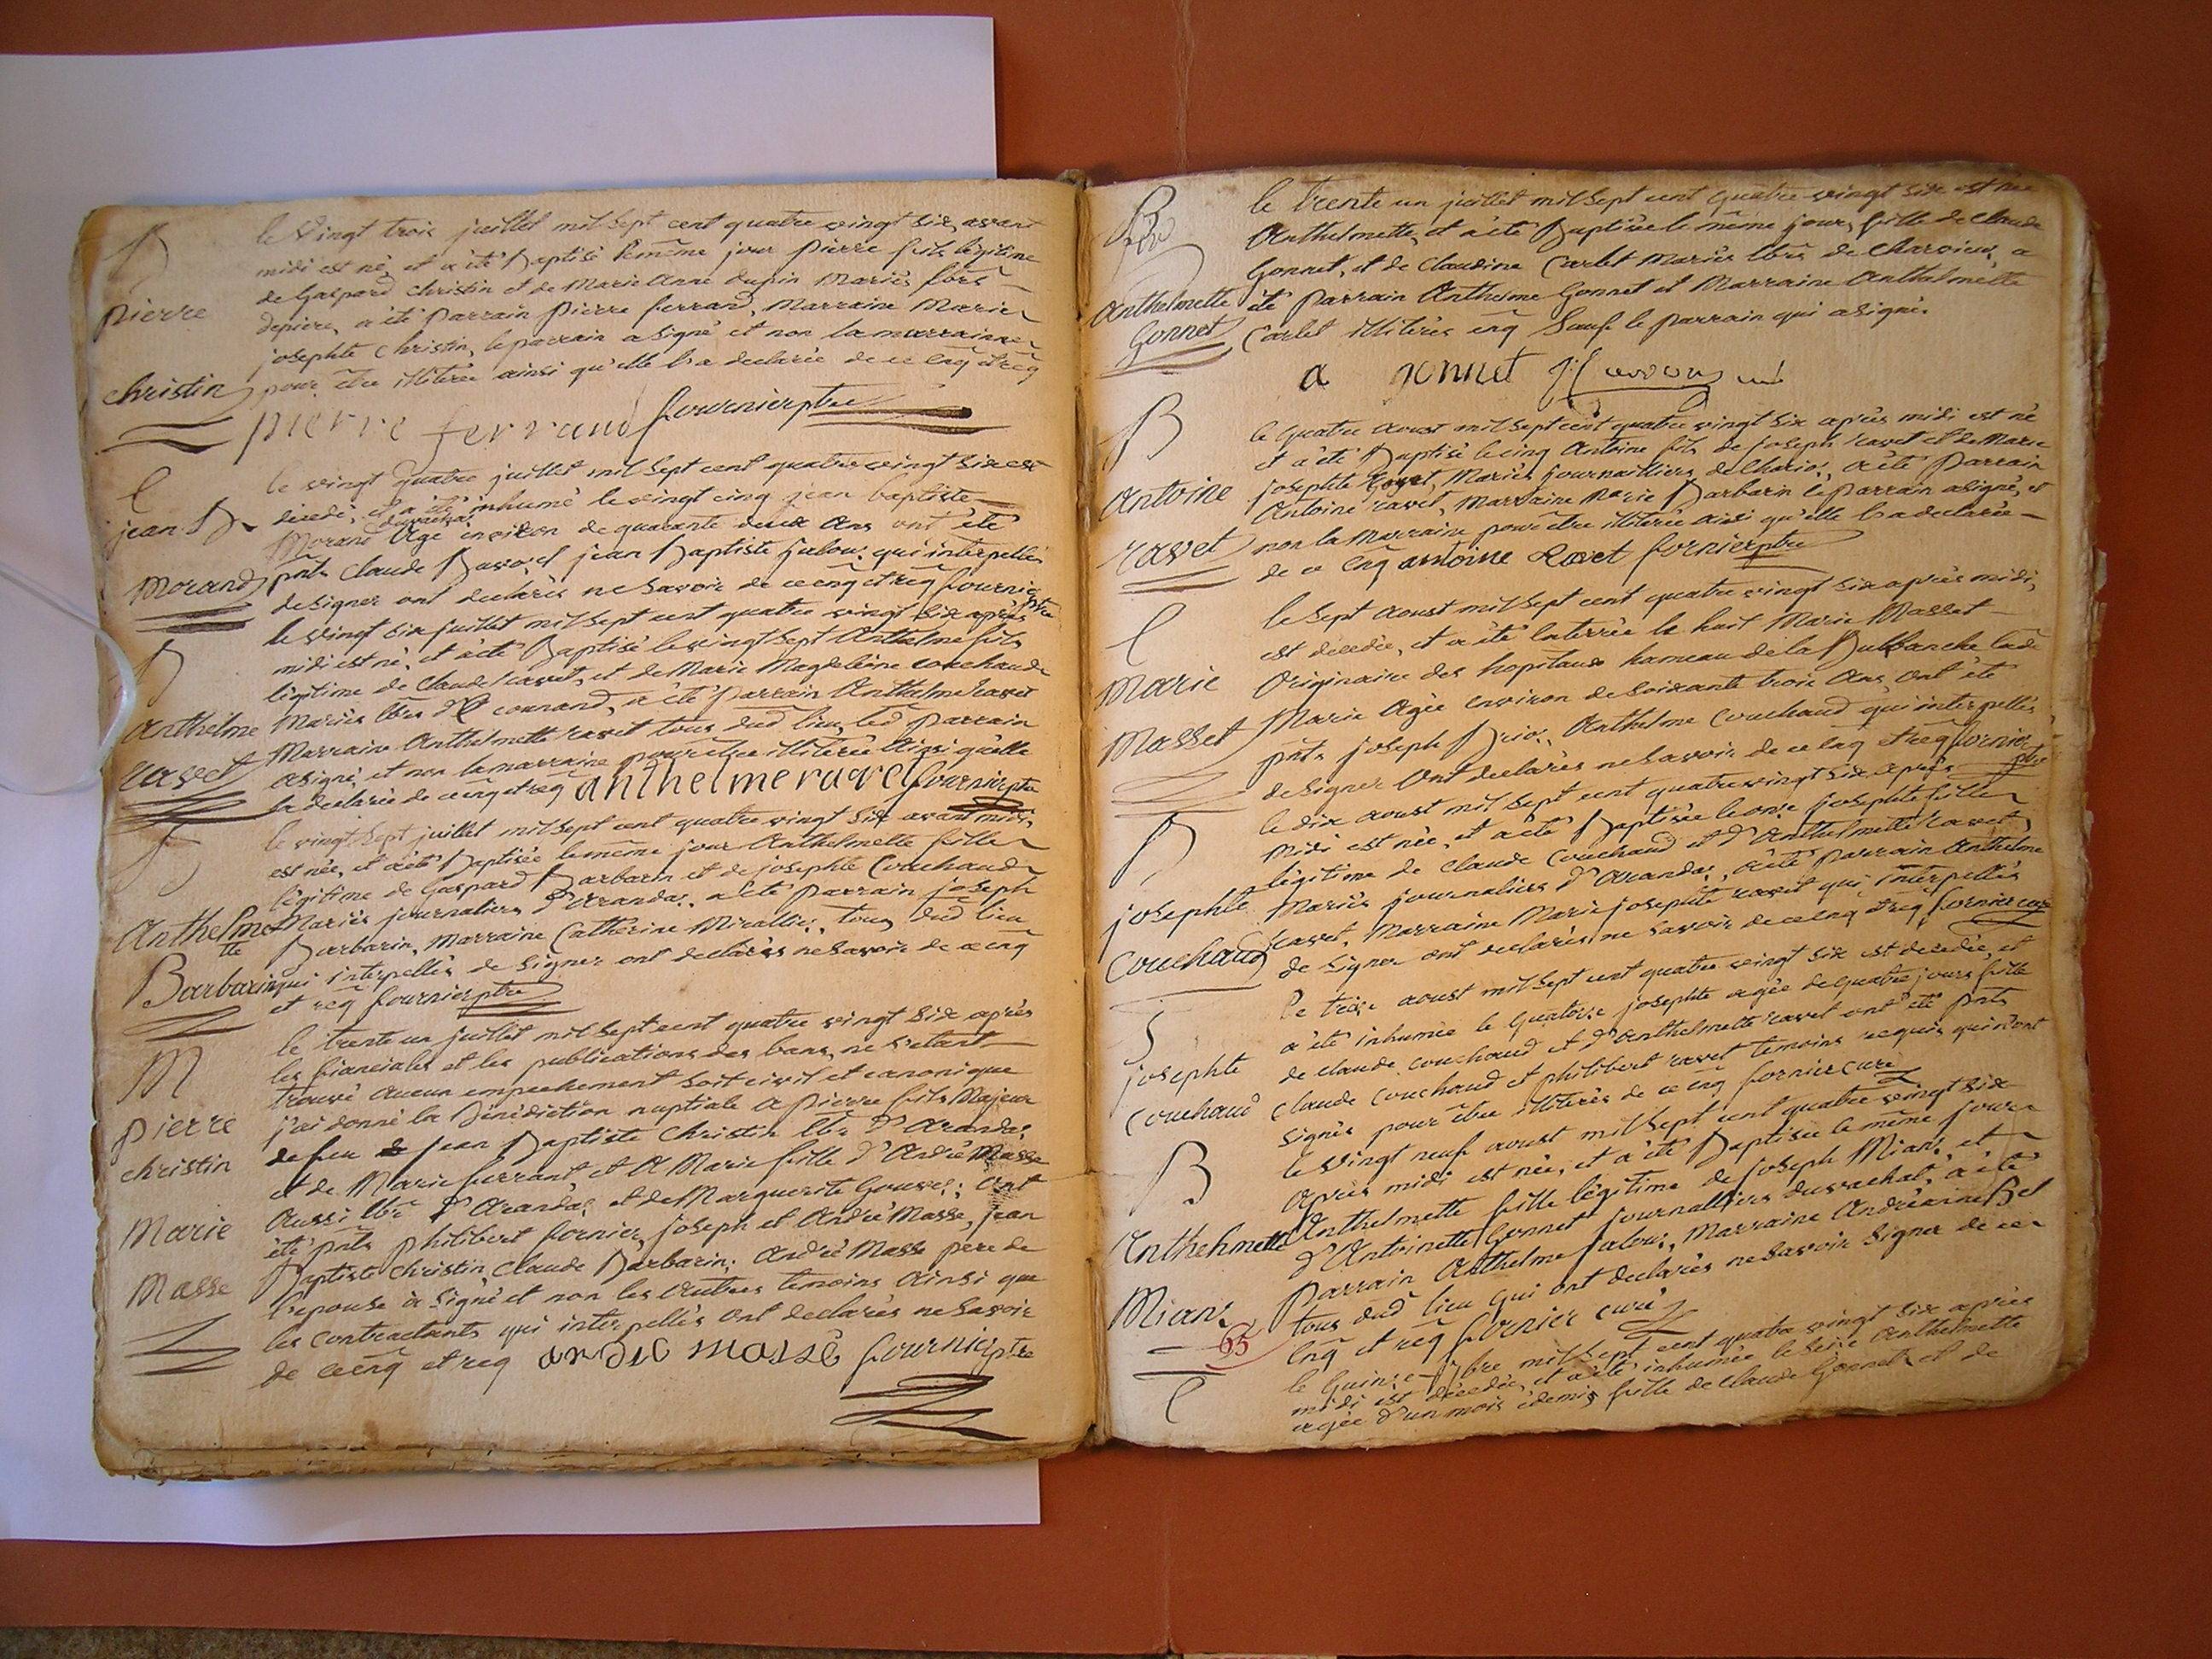 B
Pierre
christin
le Vingt trois juillet mil sept cent quatre vingt six, avant
midi est né, et a été Baptisé le même jour pierre fils légitime
de Gaspard christin et de Marie Anne dupin Mariés
a été Parrain Pierre ferrand, Marraine Marie
josephte Christin, le parrain a signé et non la marraine
pour être illitérée ainsi qu'elle l'a declarée de ce enq et req
pierre ferrand fournier ptre
jean B
Morand
le vingt quatre juillet mil sept cent quatre vingt six est
décédé, et a été inhumé le vingt cinq jean baptiste
Morand Agé environ de quarante deux Ans ont été
pnts Claude et jean Baptiste jalous qui interpellés
de signer ont declarés ne savoir de ce enq et req fournier ptre
B
Anthelme
ravet
le vingt six juillet mil sept cent quatre vingt six après
midi est né, et a été Baptisé le vingt sept Anthelme fils
légitime de Claude ravet, et de Marie Magdeleine couchaud
Mariés lbrs a été parrain Anthelme ravet
Marraine Anthelmette ravet tous dud lieu, led parrain
a signé, et non la marraine pour être illitérée Ainsi qu'elle
la declarée de ce enq et req anthelme ravet fournier ptre
Anthelme
tte
Barbarin
le vingt sept juillet mil sept cent quatre vingt six avant midi
est née, et a été Baptisée le même jour Anthelmette fille
légitime de Gaspard Barbarin et de josephte Couchaud
Mariés journaliers d'Arandas, a été Parrain joseph
Barbarin, Marraine Catherine tous dud lieu
qui interpellés de signer ont declarés ne savoir de ce enq
et req fournier ptre
M
pierre
christin
Marie
Masse
le trente un juillet mil sept cent quatre vingt six après
les fianciales et les publications des bans, ne s'étant
trouvé aucun empechement soit civil et canonique
j'ai donné la Bénédiction nuptiale a pierre fils Majeur
de feu jean Baptiste Christin lbr d'Arandas
et de Marie ferrant, et A Marie fille d'André Masse
Aussi lbr d'Arandas et de Marguerite ont
été pnts philibert fornier, joseph et André Masse, jean
Baptiste christin, Claude Barbarin; André Masse pere de
l'epouse a signé et non les Autres temoins Ainsi que
les contractants qui interpellés ont declarés ne savoir
de ce enq et req andre masse fournier ptre
Anthelmette
Gonnet
le trente un juillet mil sept cent quatre vingt six est née
Anthelmette, et a été Baptisée le même jour, fille de claude
Gonnet, et de Claudine Carlet Mariés lbrs de Charvieux, a
été Parrain Anthelme Gonnet et Marraine Anthelmette
Carlet illitérés enq Sauf le parrain qui a signé.
a gonnet
B
Antoine
ravet
le quatre Aoust mil sept cent quatre vingt six après midi est né
et a été Baptisé le cinq Antoine fils de joseph ravet et de Marie
josephte Mariés journailliers de a été Parrain
Antoine ravet, Marraine Marie Barbarin le Parrain a signé, et
non la Marraine pour être illitérée ainsi qu'elle l'a declarée
de ce enq antoine Ravet fornier ptre
Marie
Masset
le sept Aoust mil sept cent quatre vingt six après midi,
est décédée, et a été enterrée le huit Marie Masset
Originaire des hopitaux hameau de la Burbanche lade
Marie Agée environ de soixante trois Ans, ont été
pnts joseph Anthelme Couchaud qui interpellés
de signer ont declarés ne savoir de ce enq et req fornier
ptre
B
josephte
Couchaud
le dix aoust mil sept cent quatre vingt six après
Midi est née, et a été Baptisée le onze josephte fille
légitime de Claude Couchaud et d'Anthelmette ravet
Mariés journaliers d'Arandas, a été Parrain Anthelme
ravet, Marraine Marie josephte ravet qui interpellés
de signer ont declarés ne savoir de ce enq et req fornier curé
josephte
couchaud
le treize aoust mil sept cent quatre vingt six est decedée, et
a été inhumée le quatorze josephte agée de quatre jours fille
de claude couchaud et d'Anthelmette ravet ont été pnts
claude Couchaud et philibert ravet temoins requis qui n'ont
signés pour être illitérés de ce enq fornier curé
B
Anthelmette
Mians
65
le vingt neuf aoust mil sept cent quatre vingt six
Après midi est née, et a été Baptisée le même jour
Anthelmette fille légitime de joseph Mians, et
d'Antoinette Gonnet journalliers a été
Parrain Anthelme jalous, Marraine Andréanne Bel
tous dud lieu qui ont declarés ne savoir signer de ce
enq et req fornier curé
le Quinze 7bre mil sept cent quatre vingt six après
midi est décédée, et a été inhumée le seize Anthelmette
agée d'un mois & demis fille de claude Gonnet, et de